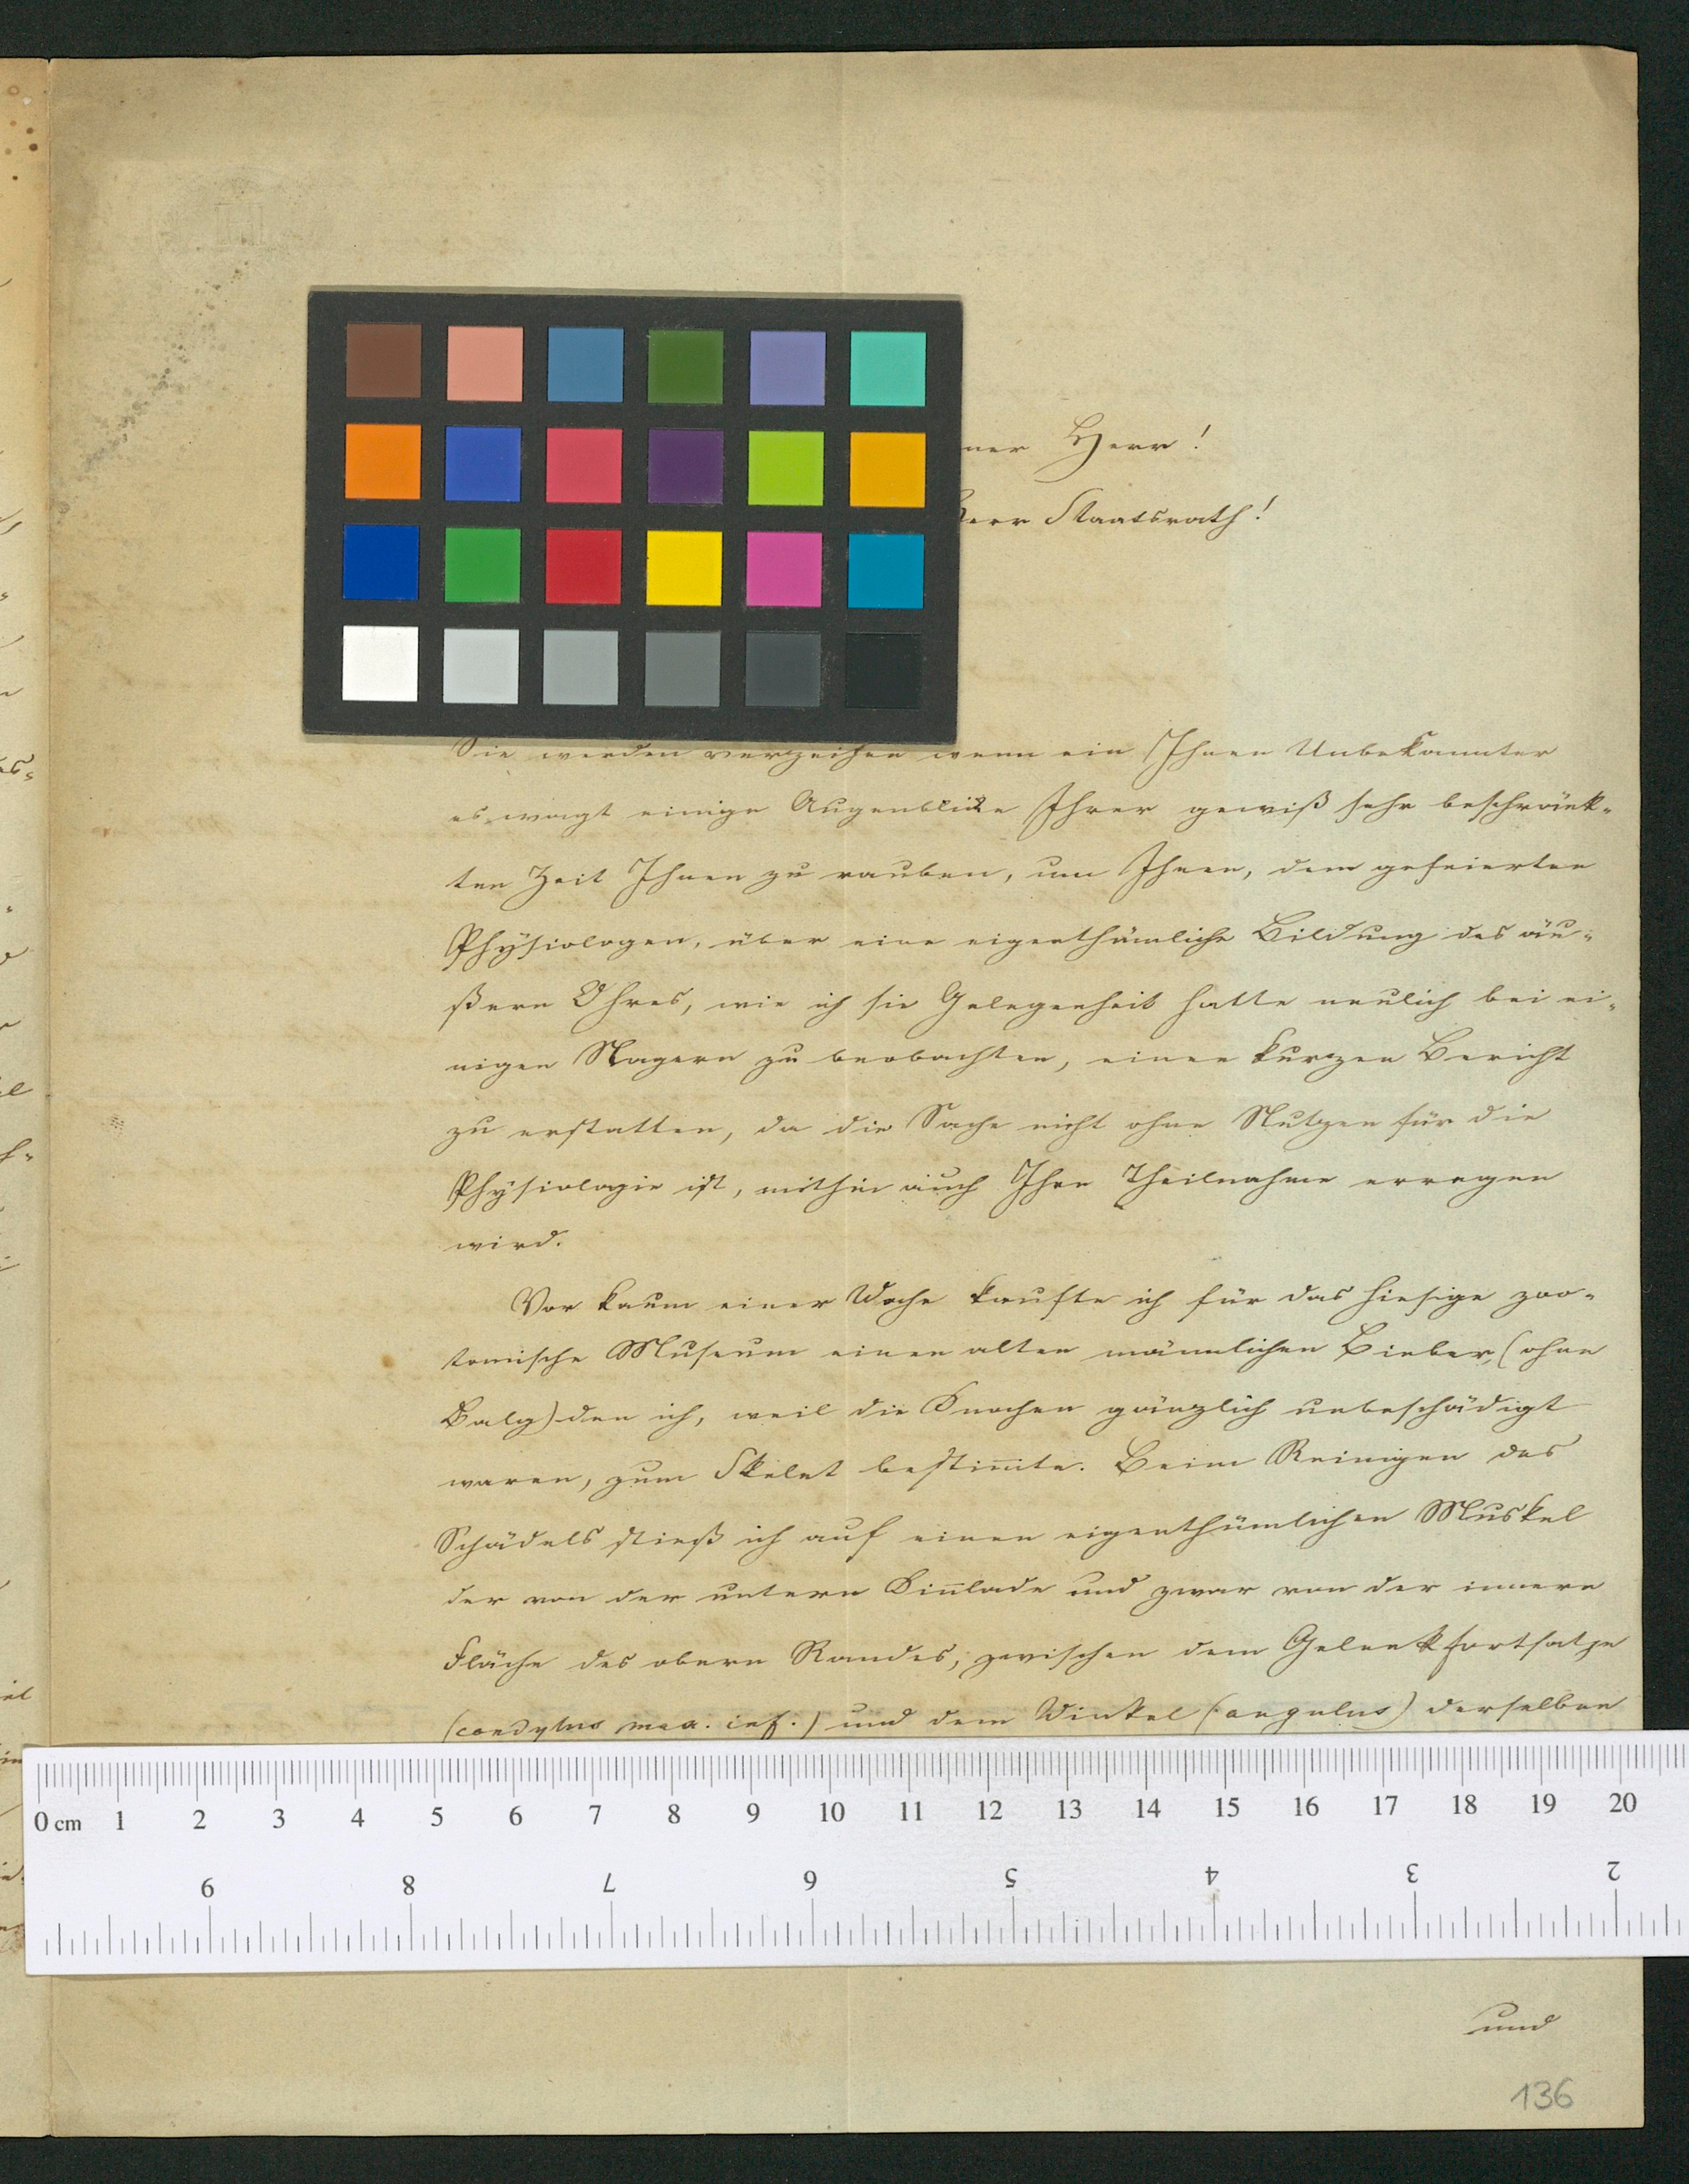 ner Herr!
Herr Staatsrath!
Sie werden verzeihen wenn ein Ihnen Unbekannter
es wagt einige Augenblicke Ihrer gewiß sehr beschränk-
ten Zeit Ihnen zu rauben, um Ihnen, dem gefeierten
Physiologen, über eine eigenthümliche Bildung des äu-
ßern Ohres, wie ich sie Gelegenheit hatte neulich bei ei-
nigen Nagern zu beobachten, einen kurzen Bericht
zu erstatten, da die Sache nicht ohne Nutzen für die
Physiologie ist, mithin auch Ihre Theilnahme erregen
wird.
Vor kaum einer Woche kaufte ich für das hiesige zoo-
tomische Museum einen alten männlichen Bieber, (ohne
Balg) den ich, weil die Knochen gänzlich unbeschädigt
waren, zum Skelet bestim̅te. Beim Reinigen des
Schädels stieß ich auf einen eigenthümlichen Muskel
der von der untern Kin̅lade und zwar von der innern
Fläche des obern Randes, zwischen dem Gelenkfortsatze
(condylus max. inf.) und dem Winkel (angulus) derselben
0 cm 1 2 3 4 5 6 7 8 9 10 11 12 13 14 15 16 17 18 19 20
9 8 7 6 5 4 3 2
und
136